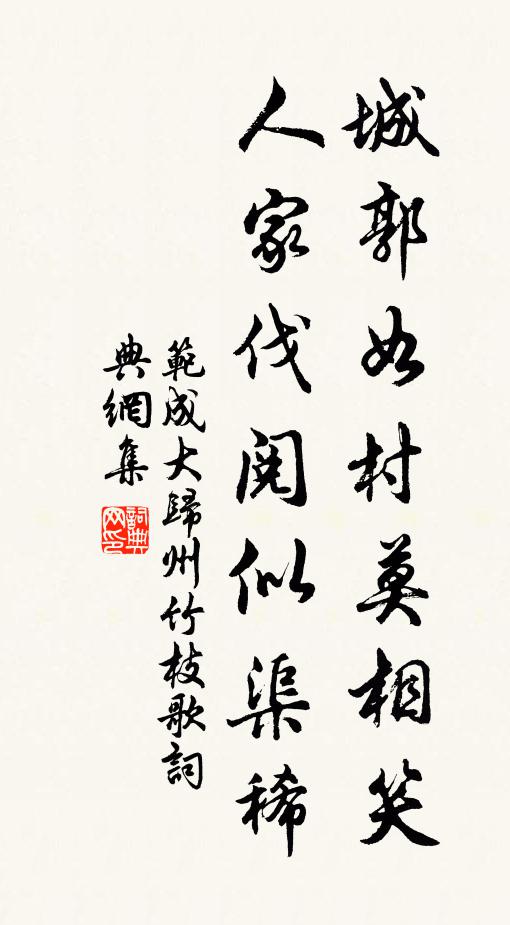 城郭如村莫相笑
人家伐閱似渠稀
範成大歸州竹枝歌詞
典網集
詞典
网印